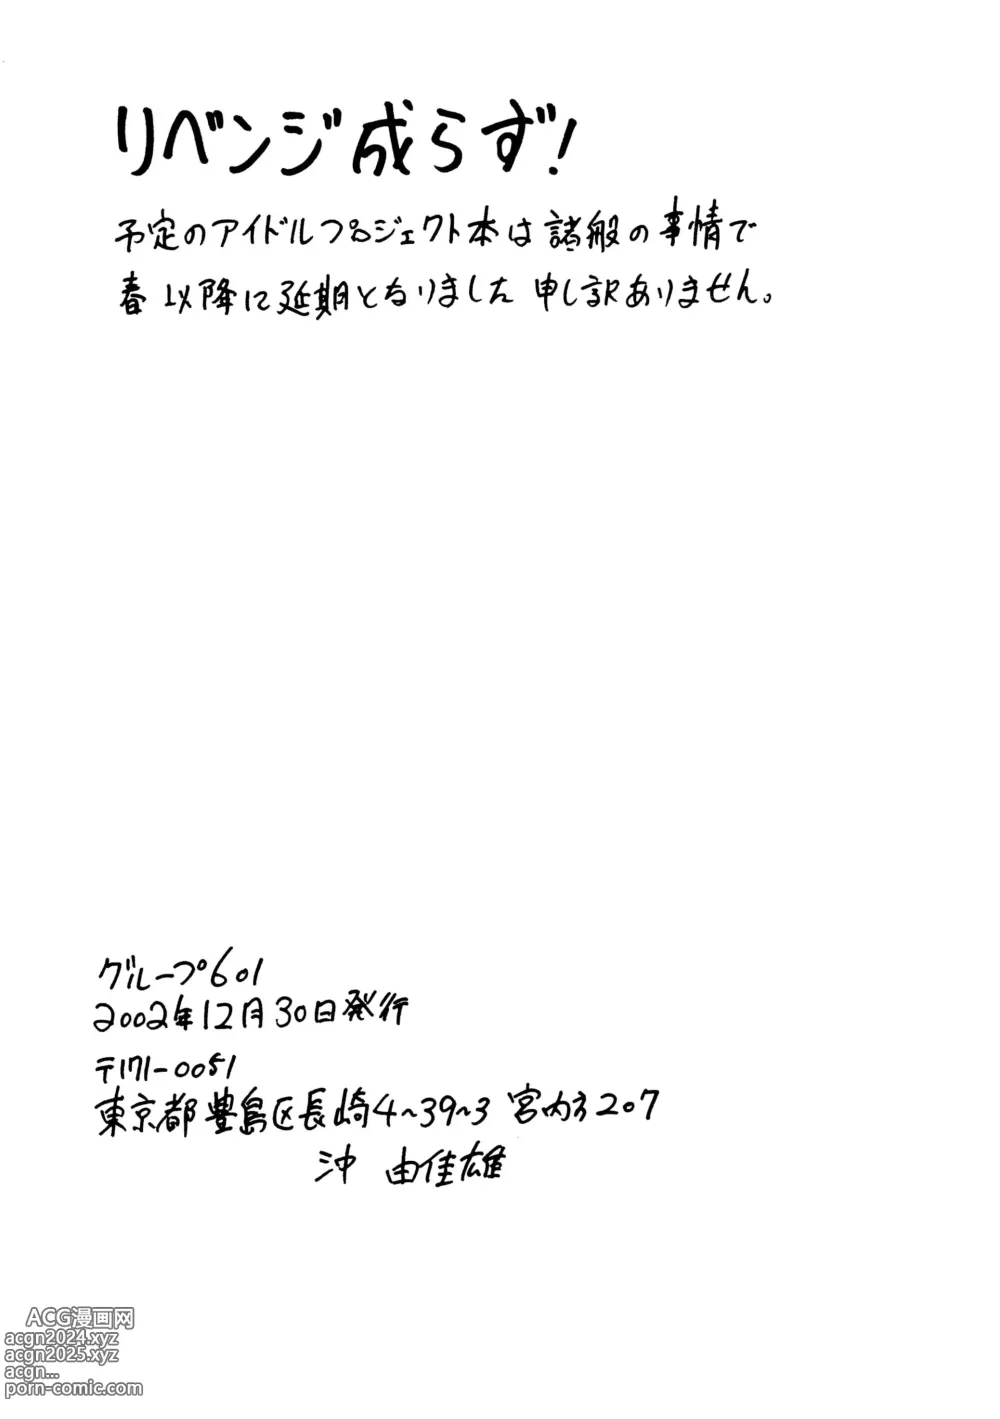 リベンジ成らず!
予定のアイドルプロジェクト本は諸般の事情で
春以降に延期となりました 申し訳ありません。
グループ601
2002年12月30日発行
〒171-0051
東京都豊島区長崎4~39~3 宮内方207
沖 由佳雄
ACG漫画网
acgn2024.xyz
acgn2025.xyz
acgn...
porn-comic.com